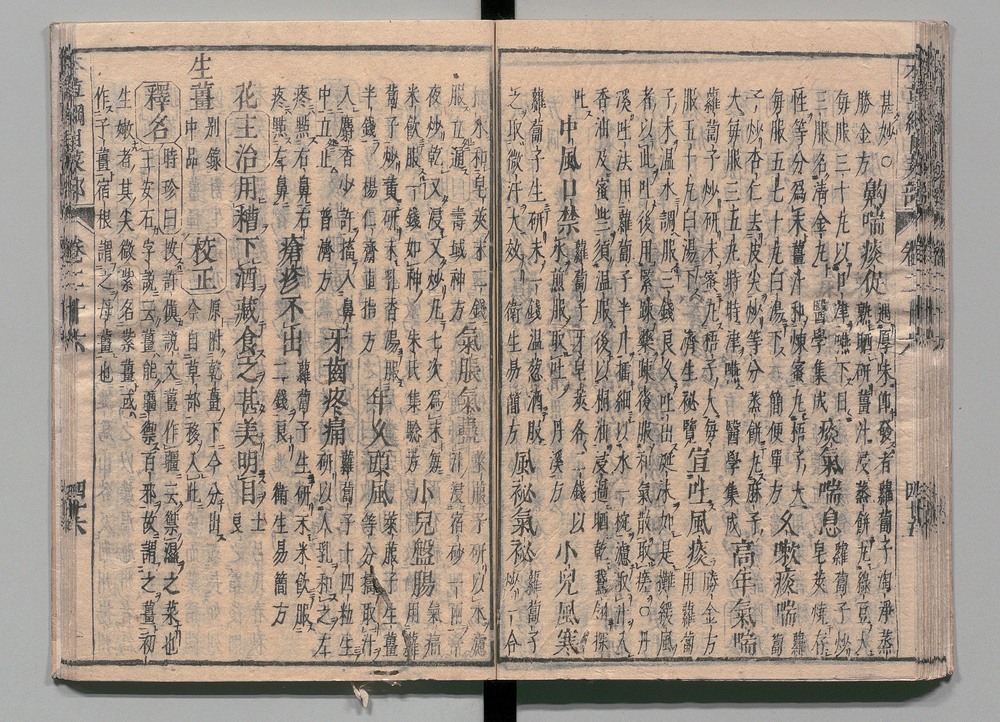 甚妙○齁喘痰促遇厚味即發者蘿蔔子淘淨蒸
熟晒研薑汁浸蒸餅丸綠豆大
每服三十丸以口津嚥下日
三服名清金丸醫學集成痰氣喘息蘿蔔子炒皂莢燒存
性等分爲末薑汁和煉蜜丸梧子大
每服五七十丸白湯下簡便單方久嗽痰喘蘿蔔
子炒杏仁去皮尖炒等分蒸餅丸麻子
大每服三五丸時時津嚥醫學集成高年氣喘
蘿蔔子炒研末蜜丸梧子大每
服五十丸白湯下濟生秘覽宣吐風痰勝金方用蘿蔔
子末溫水調服三錢良久吐出涎沫如是攤緩風
者以此吐後用緊疎藥疎後服和氣散取瘥○丹
溪吐法用蘿蔔子半升擂細以水一椀濾取汁入
香油及蜜些須溫服後以桐油浸過晒乾鵞翎探
吐中風口禁蘿蔔子牙皂莢各二錢以
水煎服取吐丹溪方小兒風寒
蘿蔔子生研末一錢溫葱酒服
之取微汗大效衛生易簡方風祕氣祕蘿蔔子
炒一合
水和皂莢末二錢
服立通壽域神方氣脹氣蠱萊菔子研以水濾
汁浸宿砂一兩一
夜炒乾又浸又炒凡七次爲末每
米飲服一錢如神朱氏集驗方小兒盤腸氣痛
用蘿
蔔子炒黃研末乳香湯服
半錢楊仁齋直指方年久頭風萊菔子生薑
等分搗取汁
入麝香少許搐入鼻
中立止普濟方牙齒疼痛蘿蔔子十四粒生
研以人乳和之左
疼點右鼻右
疼點左鼻瘡疹不出蘿蔔子生研末米飲服
二錢良衛生易簡方
花主治用糟下酒藏食之甚美明目士
良
生薑別錄
中品校正原附乾薑下今分出
今自草部移入此
釋名時珍曰按許愼說文薑作䕬云禦濕之菜也
王安石字說云薑能疆禦百邪故謂之薑初
生嫩者其尖微紫名紫薑或
作子薑宿根謂之母薑也